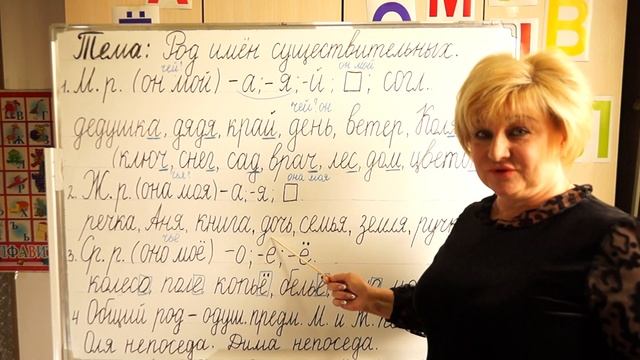 Тема: Род имён существительных.
чей? он мой
1. М. р. (он мой) -а; -я; -й; □; согл.
чей? он
дедушка, дядя, край, день, ветер, Коля
(ключ, снег, сад, врач, лес, дом,
чья? она моя
2. Ж. р. (она моя) -а; -я; □
речка, Аня, книга, дочь, семья, земля,
чьё
3. Ср. р. (оно моё) -о; -е; -ё.
колесо поле копьё,
4 Общий род - одуш. предм. М. и Ж.
Оля непоседа. Дима непоседа.